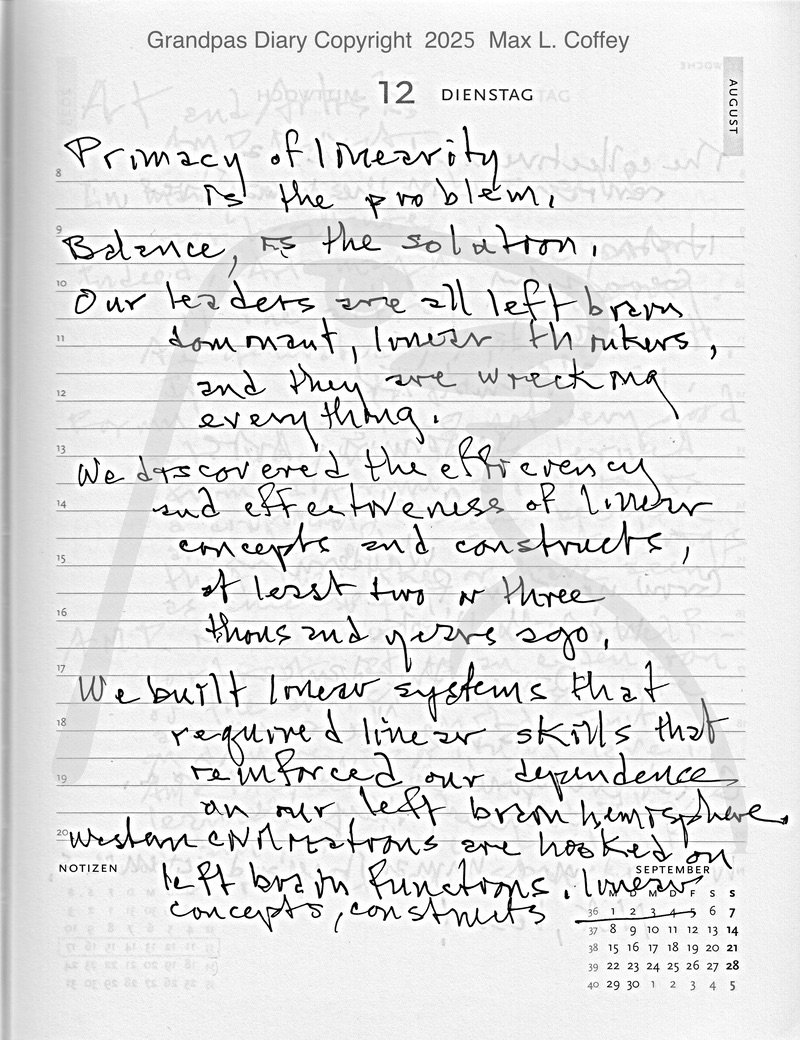 Grandpas Diary Copyright 2025 Max L. Coffey
12 DIENSTAG
AUGUST
Primacy of linearity
is the problem.
Balance, is the solution.
Our leaders are all left brain
dominant, linear thinkers,
and they are wrecking
everything.
We discovered the efficiency
and effectiveness of linear
concepts and constructs,
at least two or three
thousand years ago.
We built linear systems that
required linear skills that
reinforced our dependence
on our left brain hemisphere.
Western civilizations are hooked on
left brain functions, linear
concepts, constructs
8
9
10
11
12
13
14
15
16
17
18
19
20
NOTIZEN
SEPTEMBER
M D M D F S S
36 1 2 3 4 5 6 7
37 8 9 10 11 12 13 14
38 15 16 17 18 19 20 21
39 22 23 24 25 26 27 28
40 29 30 1 2 3 4 5